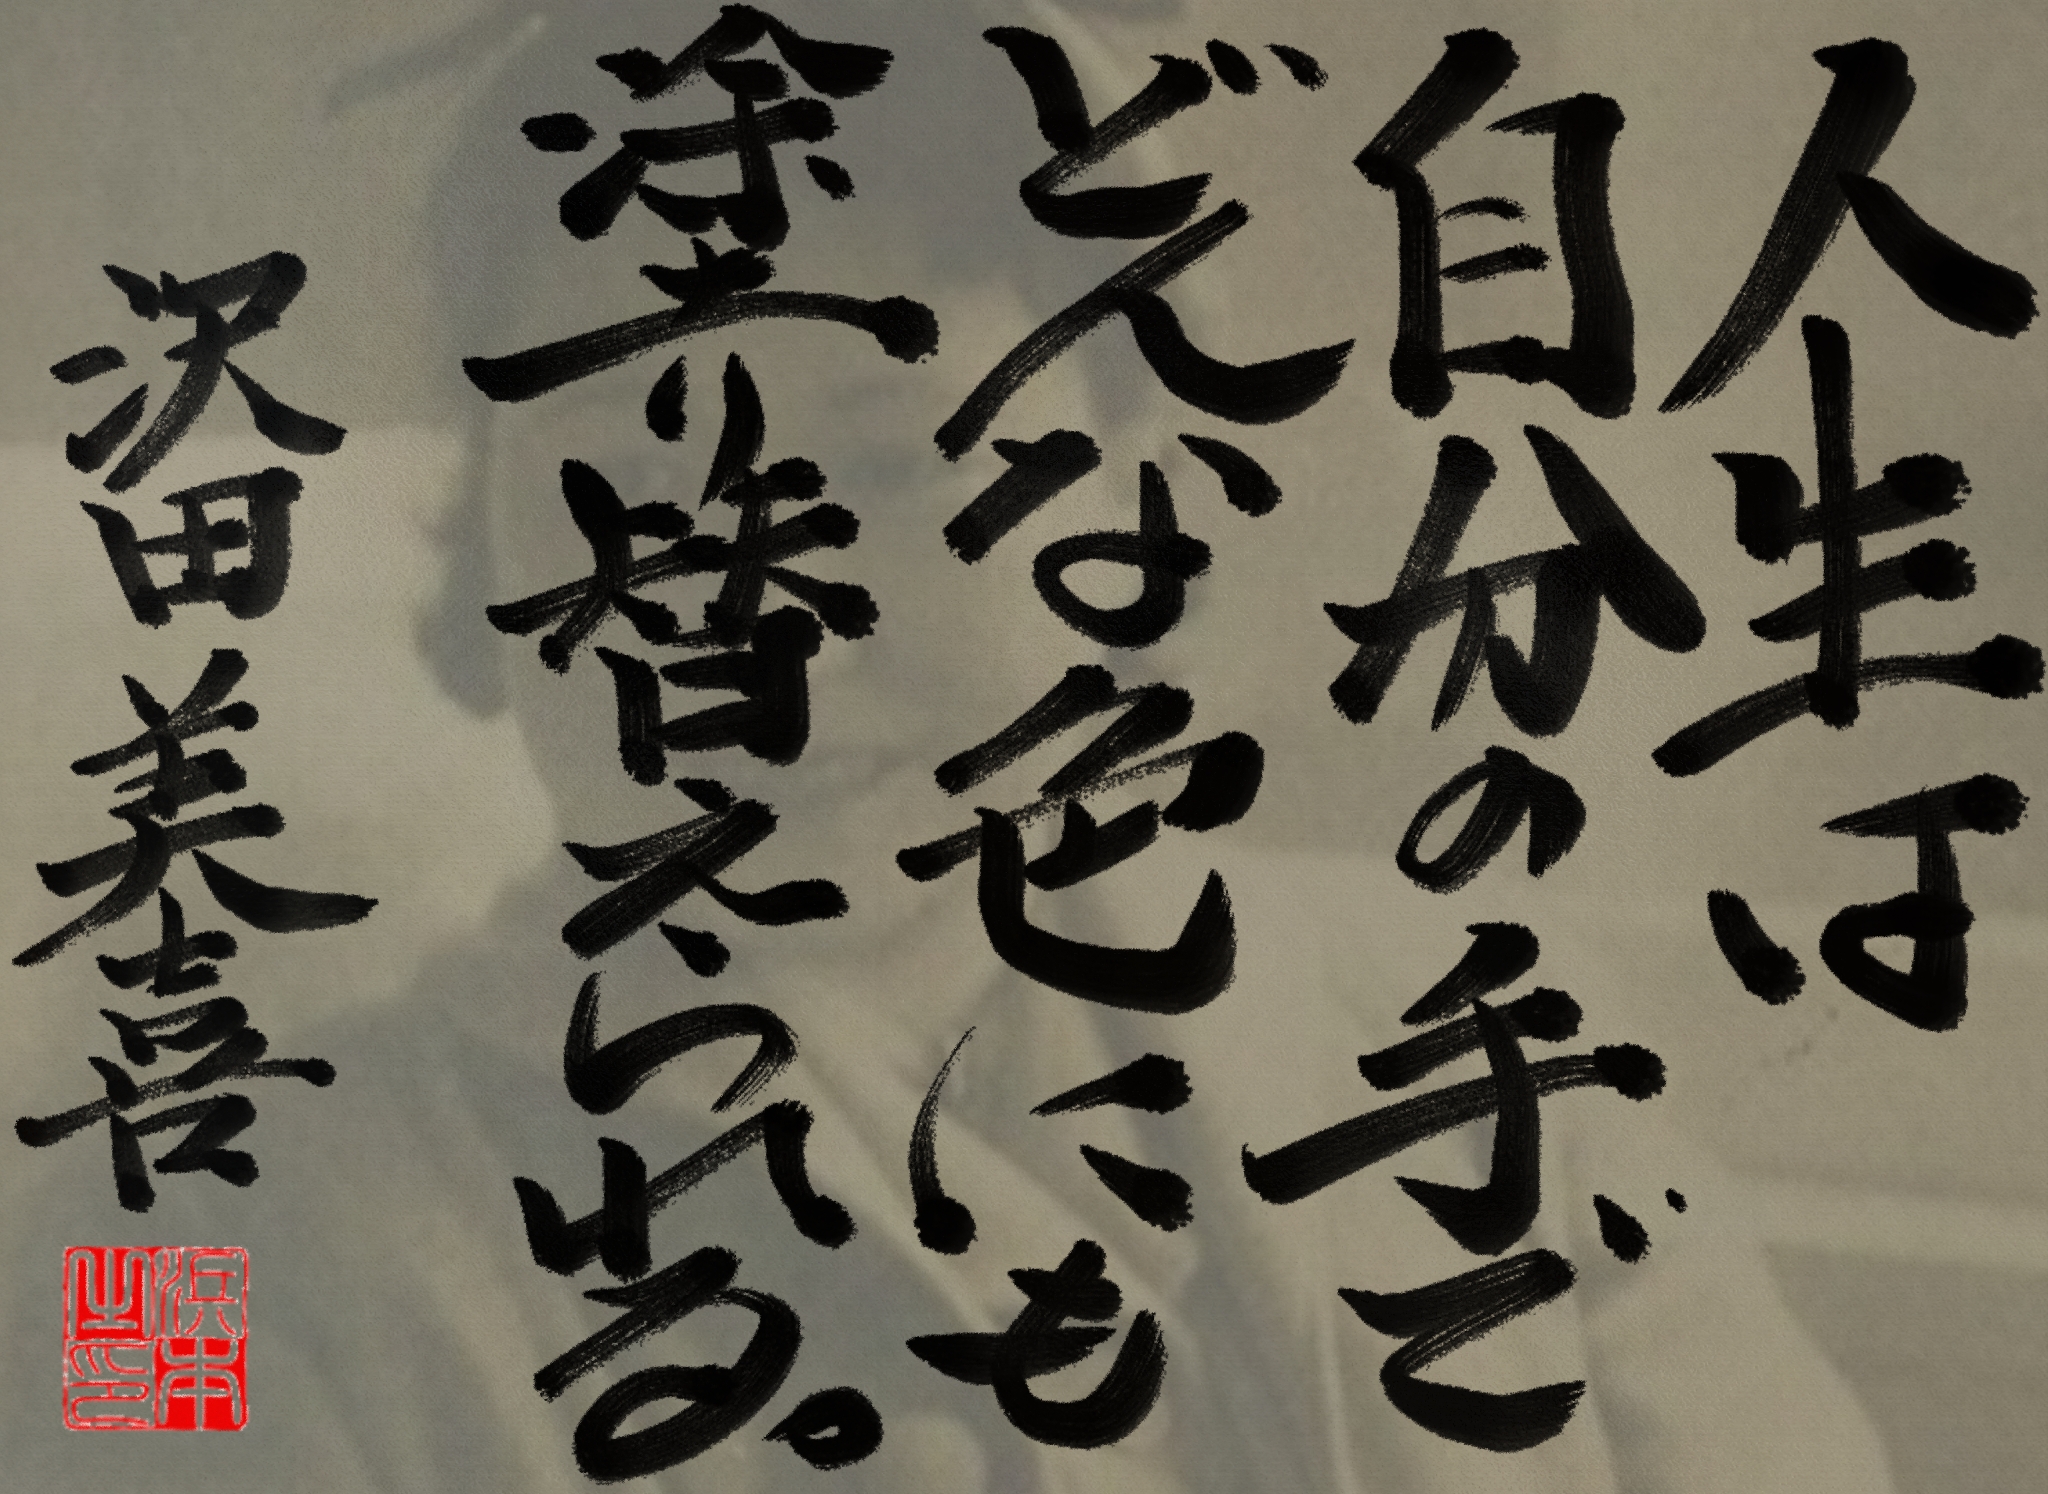 人生は
自分の手で
どんな色にも
塗り替えられる。
沢田美喜
浜本之印